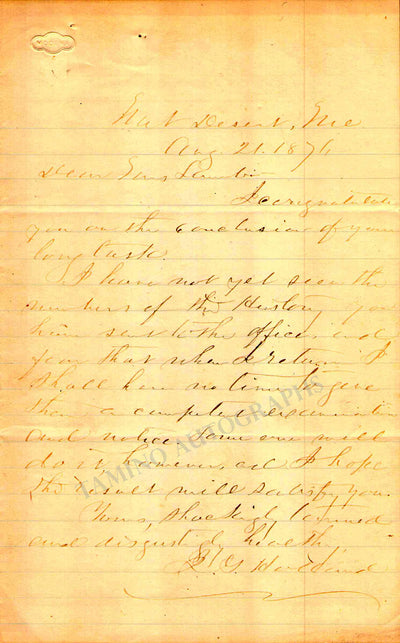 Mt Desert, Me
Aug 21. 1876
Dear
I congratulate
you on the conclusion of your
long task.
I have not yet seen the
numbers of the History you
have sent to the office, and
fear that when I return I
shall have no time to give
them a competent examination
and notice. Some one will
do it however, and I hope
the result will satisfy you.
Yours,
and disgusted health
J. G. Holland
TAMINO AUTOGRAPHS